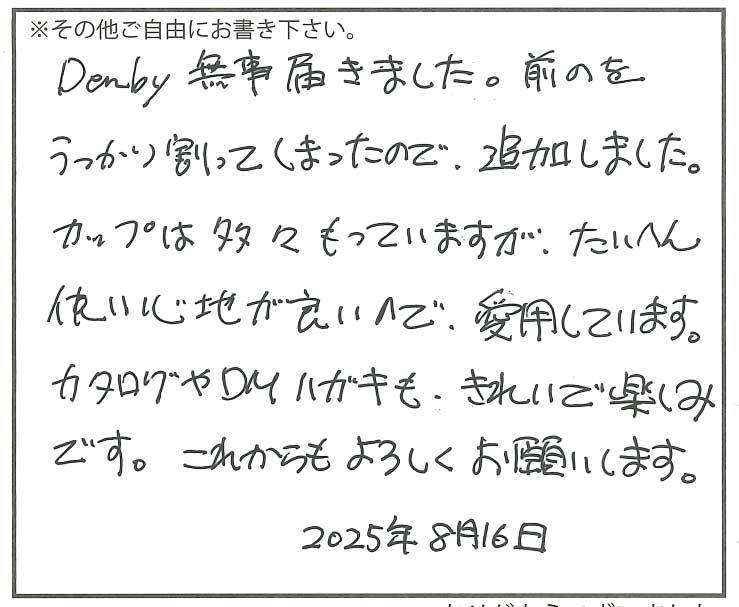 ※その他ご自由にお書き下さい。
Denby 無事届きました。前のを
うっかり割ってしまったので、追加しました。
カップは多々もっていますが、たいへん
使い心地が良いので、愛用しています。
カタログやDMハガキも、きれいで楽しみ
です。これからもよろしくお願いします。
2025年8月16日